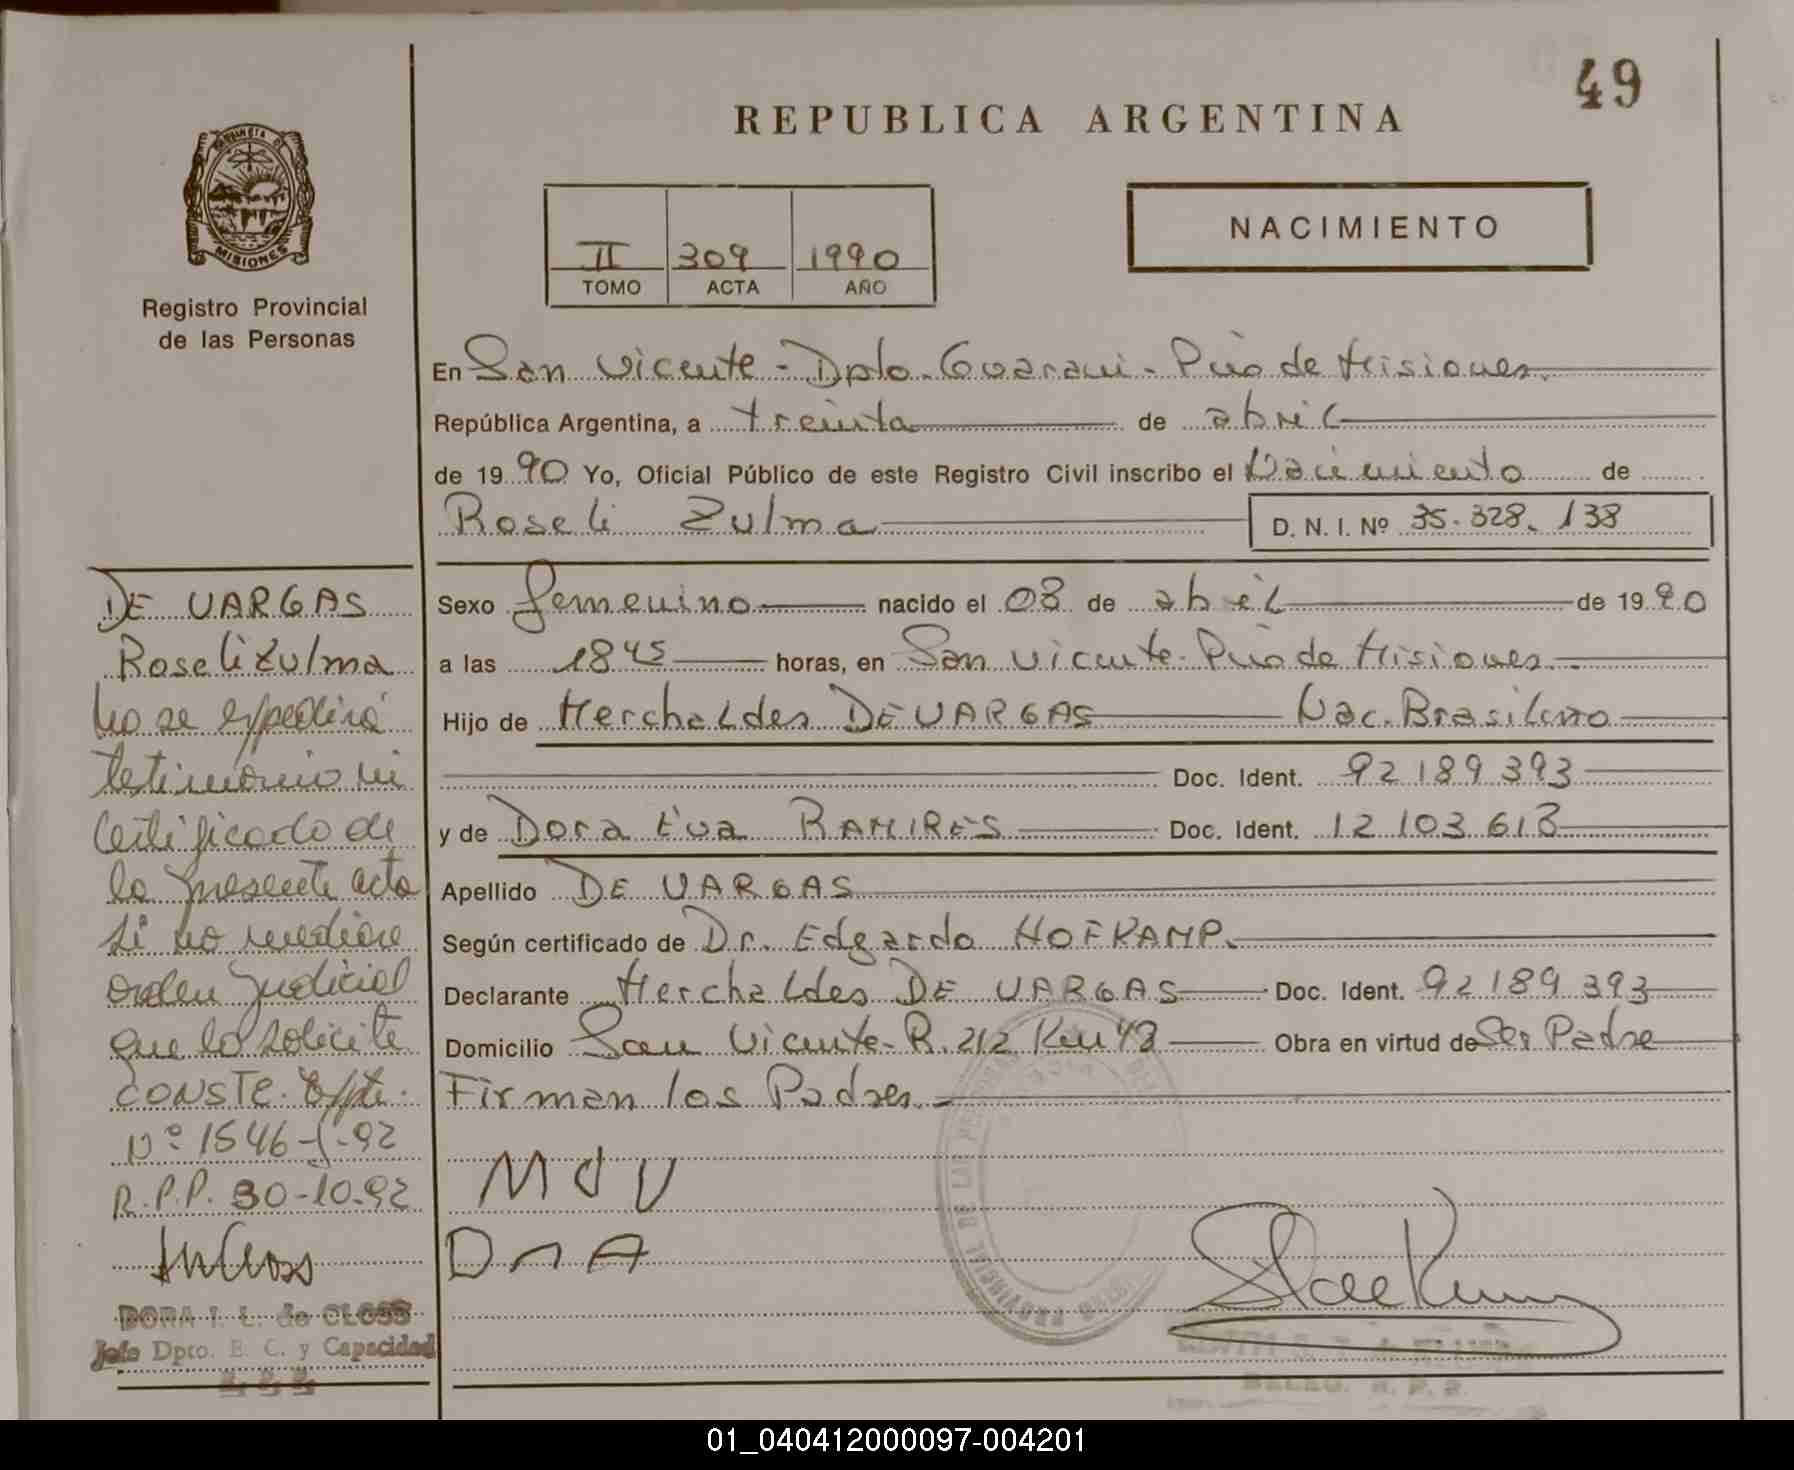 49
REPUBLICA ARGENTINA
PROVINCIA DE
MISIONES
Registro Provincial
de las Personas
NACIMIENTO
II 309 1990
TOMO ACTA AÑO
En San Vicente - Dpto. Guarani - Pcia de Misiones.
República Argentina, a treinta de abril
de 19 90 Yo, Oficial Público de este Registro Civil inscribo el Nacimiento de
Roseli Zulma D. N. I. Nº 35.328.138
Sexo femenino nacido el 08 de abril de 19 90
a las 18 45 horas, en San Vicente - Pcia de Misiones.
Hijo de Herchaldes DE VARGAS Nac. Brasilero
Doc. Ident. 92 189 393
y de Dora Eva RAMIRES Doc. Ident. 12 103 613
Apellido DE VARGAS
Según certificado de Dr. Edgardo HOFKAMP.
Declarante Herchaldes DE VARGAS Doc. Ident. 92 189 393
Domicilio San Vicente - R. 212 Km 48 Obra en virtud de Ser Padre
Firman los Padres.
M d V
D A
DE VARGAS
Roseli Zulma
No se expedirá
testimonio ni
certificado de
la presente acta
si no mediare
orden judicial
que lo solicite
CONSTE. Expte.
Nº 1546-J-92
R.P.P. 30-10-92
DORA I. L. de CLOSS
Jefe Dpto. E. C. y Capacidad
01_040412000097-004201